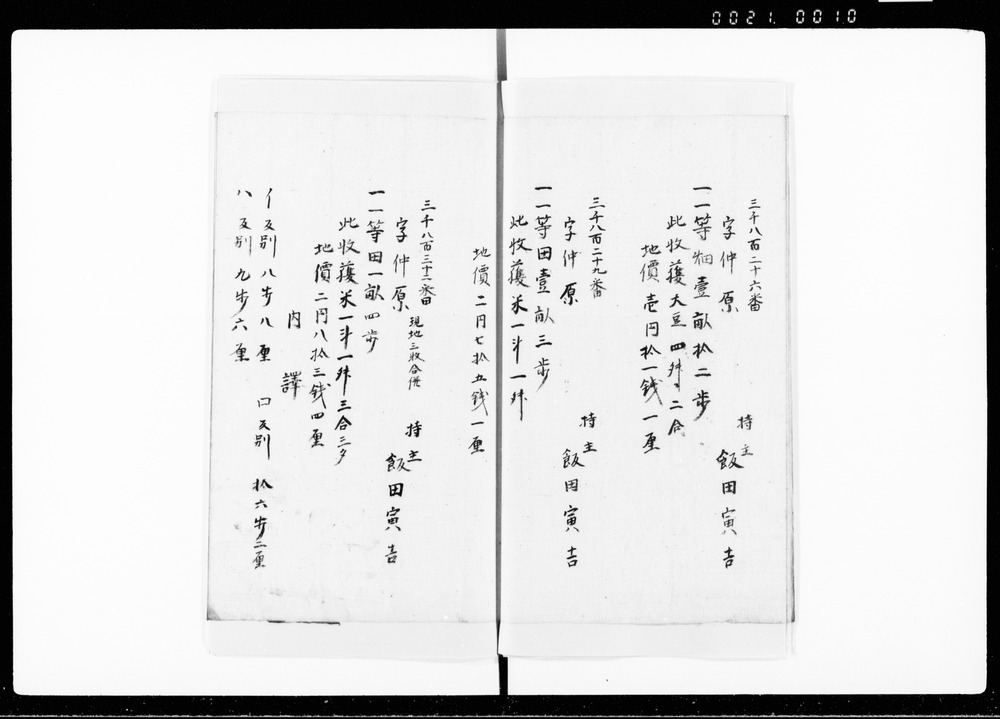 0021. 0010
三千八百二十六番
字仲原
持主
飯田寅吉
一一等畑壹畝拾二歩
此收獲大豆四舛二合
地價壱円拾一銭一厘
三千八百二十九番
字仲原
持主
飯田寅吉
一一等田壹畝三歩
此收獲米一斗一舛
地價二円七拾五銭一厘
三千八百三十二番田
字仲原
現地三枚合併
持主
飯田寅吉
一一等田一畝四歩
此收獲米一斗一舛三合三夕
地價二円八拾三銭四厘
内譯
イ反別八歩八厘 口反別 拾六歩二厘
ハ反別九歩六厘